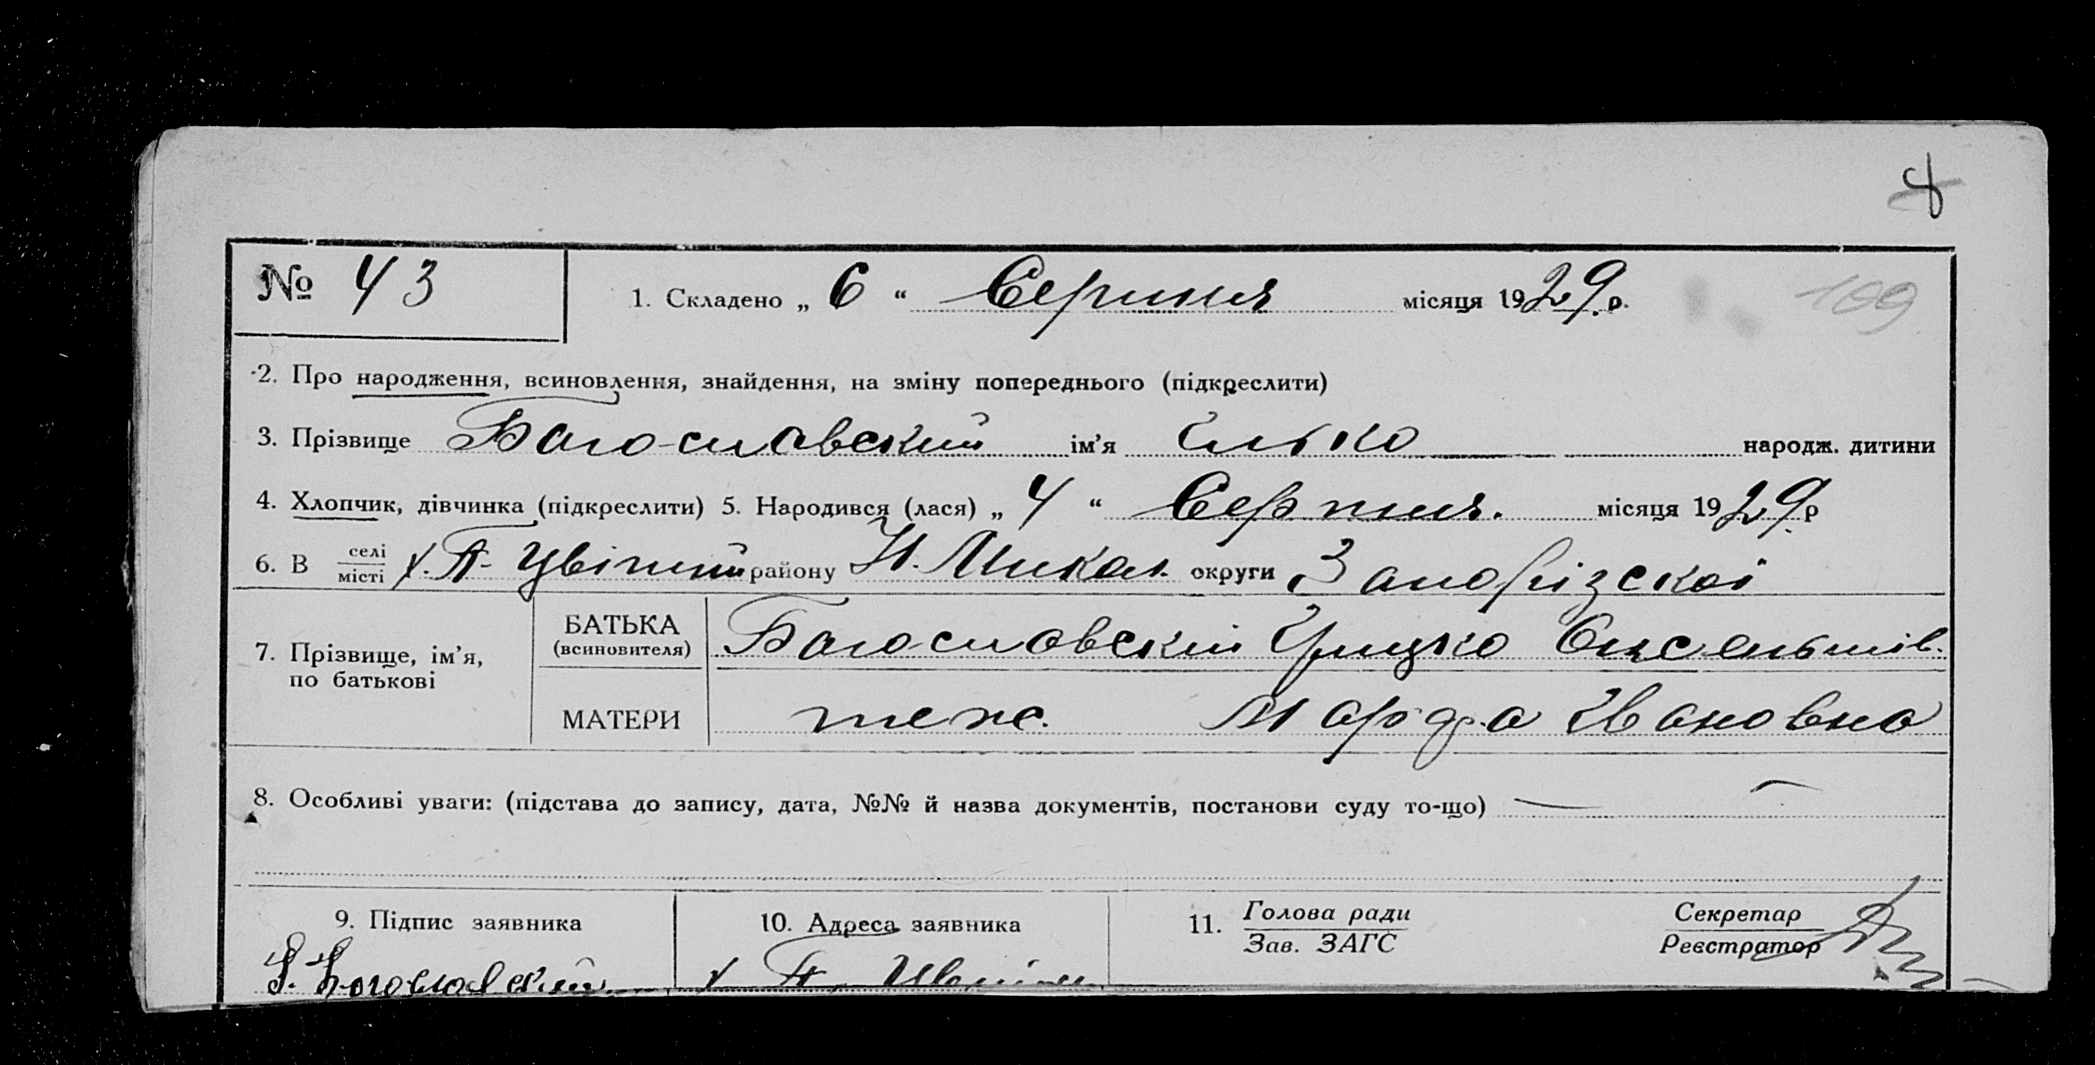 № 43
1. Складено „ 6 “ Серпня місяця 1929 р.
109
2. Про народження, всиновлення, знайдення, на зміну попереднього (підкреслити)
3. Прізвище Богословский ім’я Ілько народж. дитини
4. Хлопчик, дівчинка (підкреслити) 5. Народився (лася) „ 4 “ Серпня. місяця 1929 р
6. В селі/місті х. П. Цвітний району Н. Микол. округи Запорізскоі
7. Прізвище, ім’я, по батькові
БАТЬКА (всиновителя) Богословскій Грицько Оксентів.
МАТЕРИ теж. Марфа Ивановна
8. Особливі уваги: (підстава до запису, дата, №№ й назва документів, постанови суду то-що)
9. Підпис заявника
10. Адреса заявника
11. Голова ради
Зав. ЗАГС
Секретар
Реєстратор
Г. Богословский
х П.